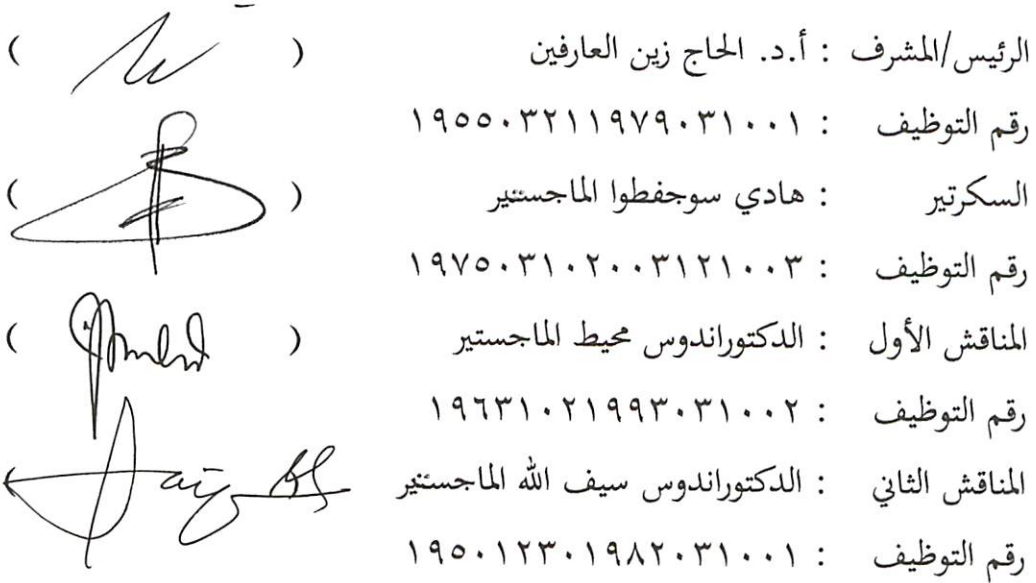 الرئيس/المشرف : أ.د. الحاج زين العارفين ( )
رقم التوظيف : ١٩٥٥٠٣٢١١٩٧٩٠٣١٠٠١
السكرتير : هادي سوجفطوا الماجستير ( )
رقم التوظيف : ١٩٧٥٠٣١٠٢٠٠٣١٢١٠٠٣
المناقش الأول : الدكتوراندوس محيط الماجستير ( )
رقم التوظيف : ١٩٦٣١٠٢١٩٩٣٠٣١٠٠٢
المناقش الثاني : الدكتوراندوس سيف الله الماجستير
رقم التوظيف : ١٩٥٠١٢٣٠١٩٨٢٠٣١٠٠١